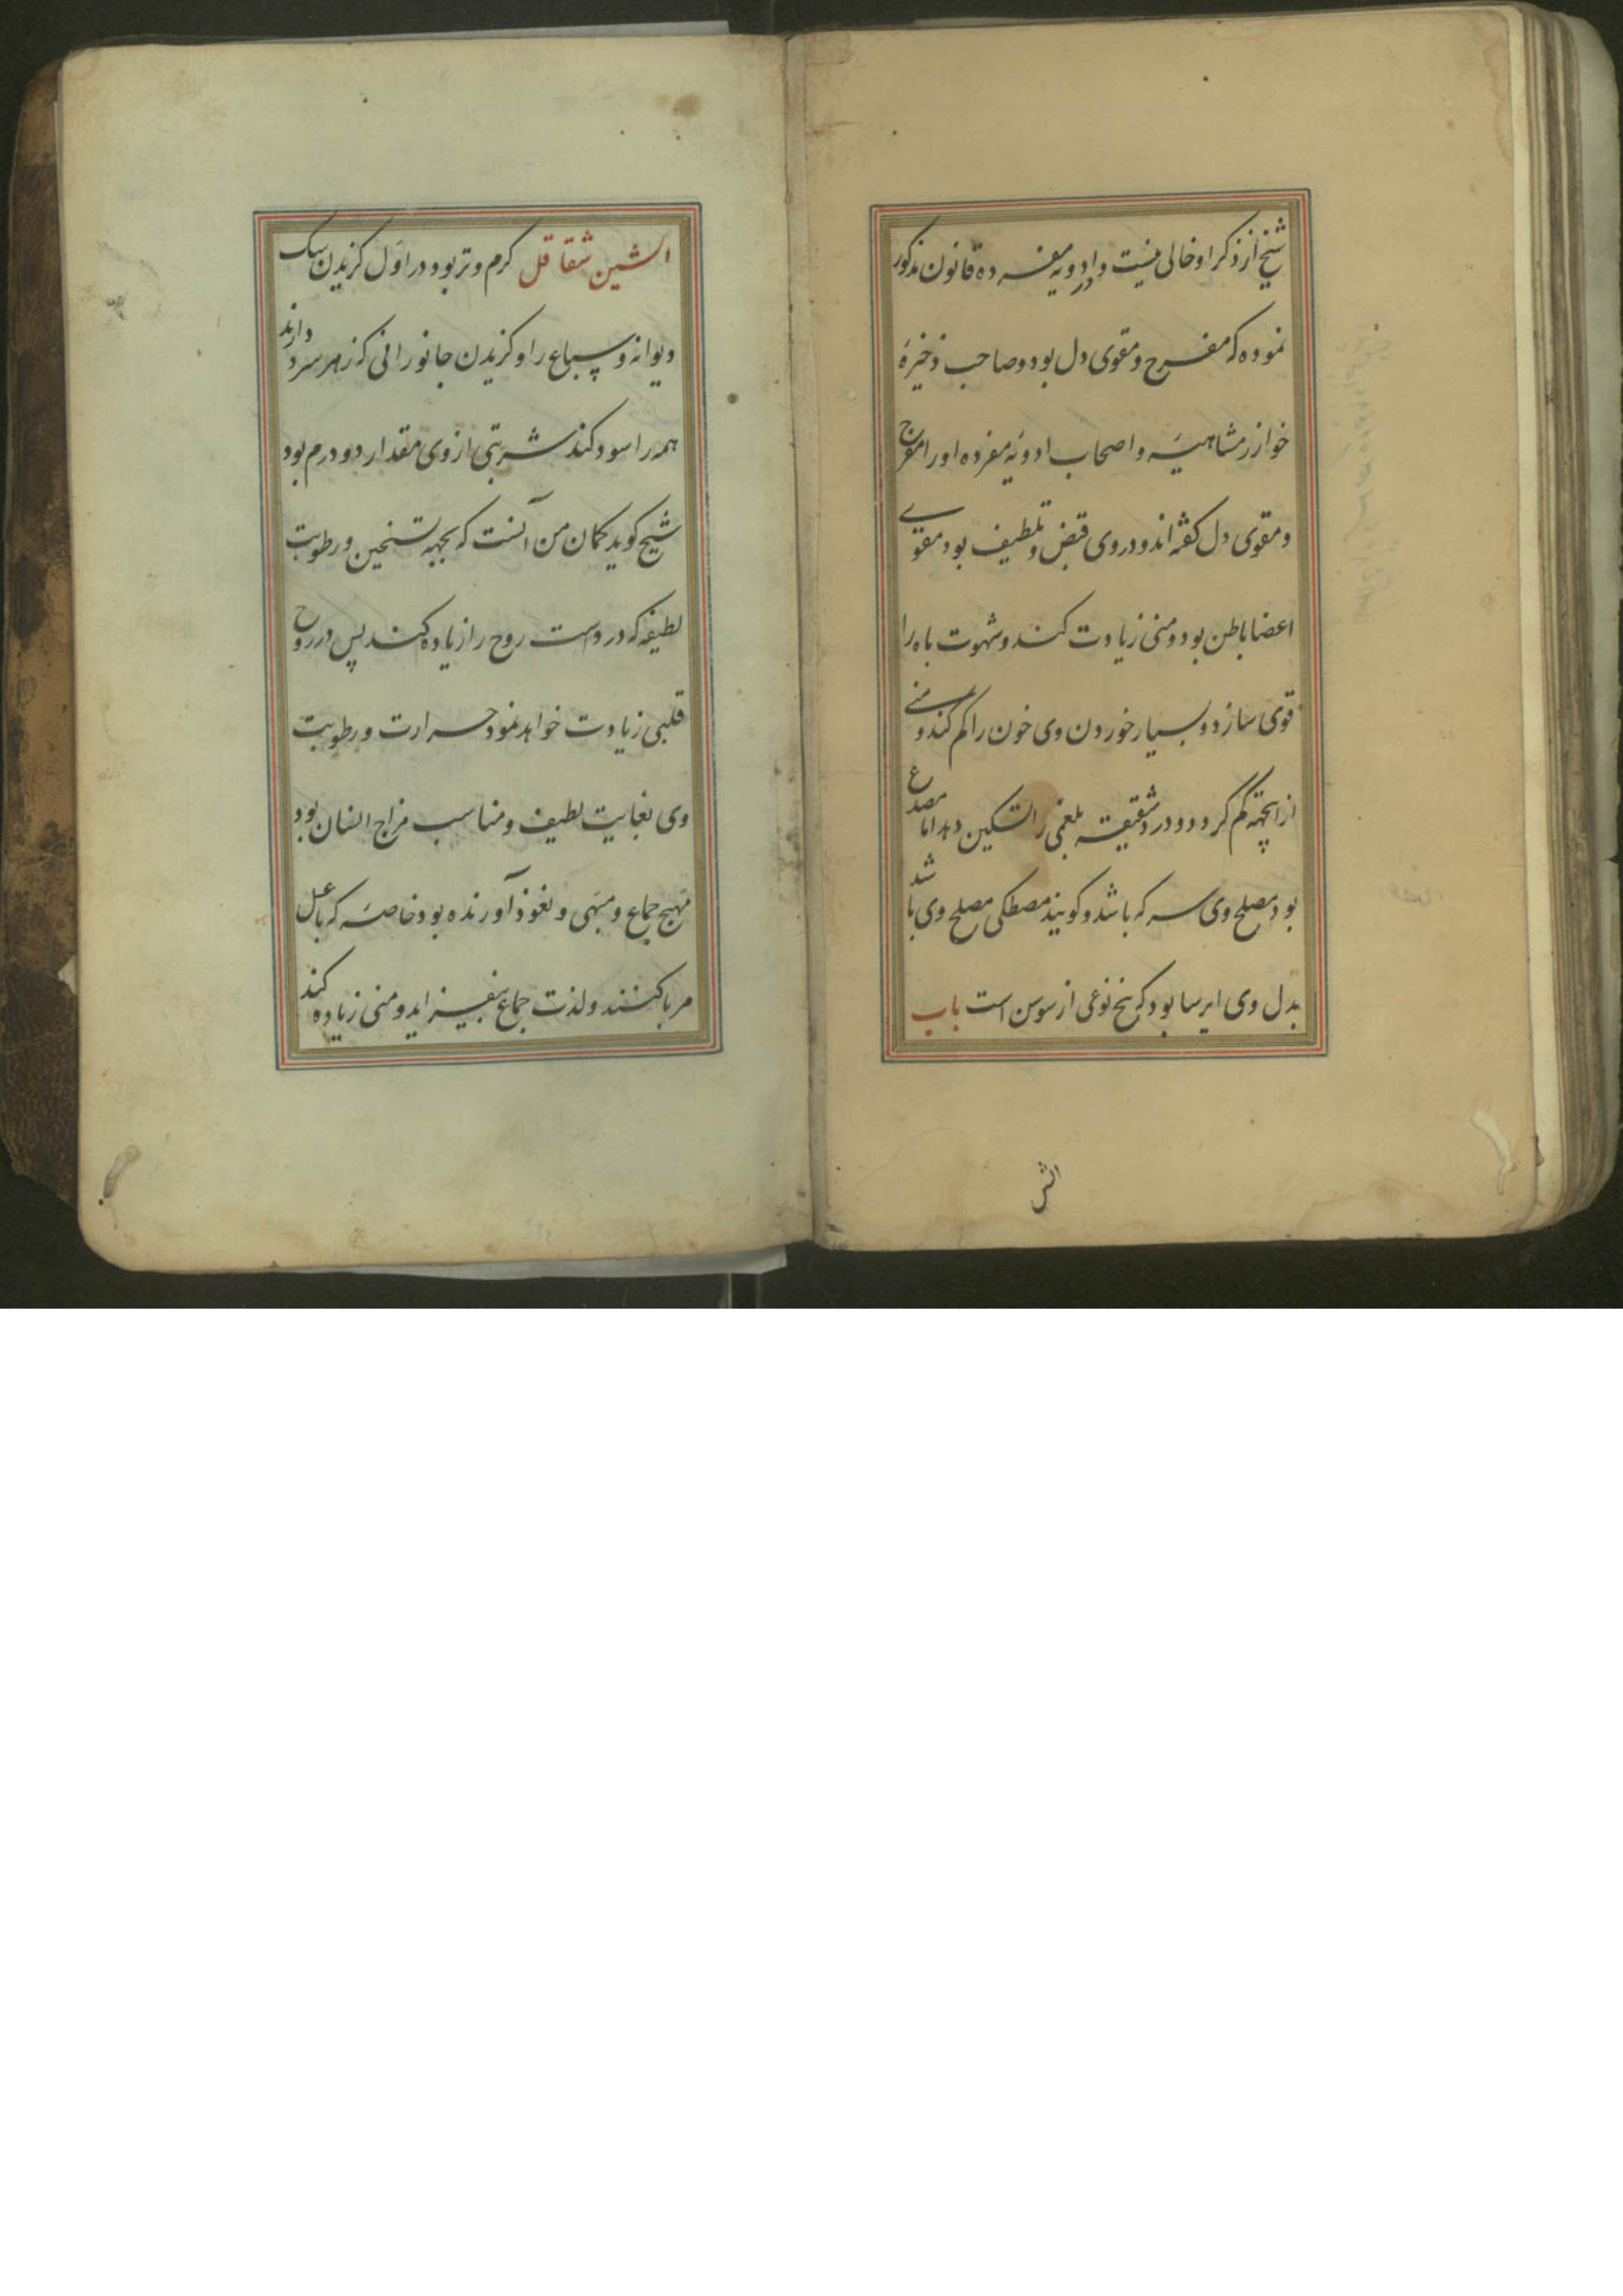 شیخ از ذکر او خالی نیست و در ادویه مفرده قانون مذکور
نموده که مفرح و مقوی دل بود و صاحب ذخیرهٔ
خوارزمشاهیه و اصحاب ادویهٔ مفرده او را مفرح
و مقوی دل کفته اند و در وی قبض و تلطیف بود مقوی
اعضا باطن بود و منی زیادت کند و شهوت باه را
قوی سازد و بسیار خوردن وی خون را کم کند و منی
از انجهته کم کردد و درد شقیقه بلغمی را تسکین دهد اما مصدع
بود مصلح وی سرکه باشد و کویند مصطکی مصلح وی باشد
بدل وی ایرسا بود که بیخ نوعی از سوسن است باب
الش
الشین شقاقل کرم و تر بود در اول کزیدن سک
دیوانه و سباع را و کزیدن جانورانی که زهر سرد دارند
همه را سود کند شربتی از وی مقدار دو درم بود
شیخ کوید کمان من آنست که بجهة تسخین و رطوبت
لطیفه که در دست روح را زیاده کند پس در روح
قلبی زیادت خواهد نمود حرارت و رطوبت
وی بغایت لطیف و مناسب مزاج انسان بود
مهیج جماع و مبهی و نعوذ آورنده بود خاصه که با عسل
مربا کنند و لذت جماع بیفزاید و منی زیاده کند